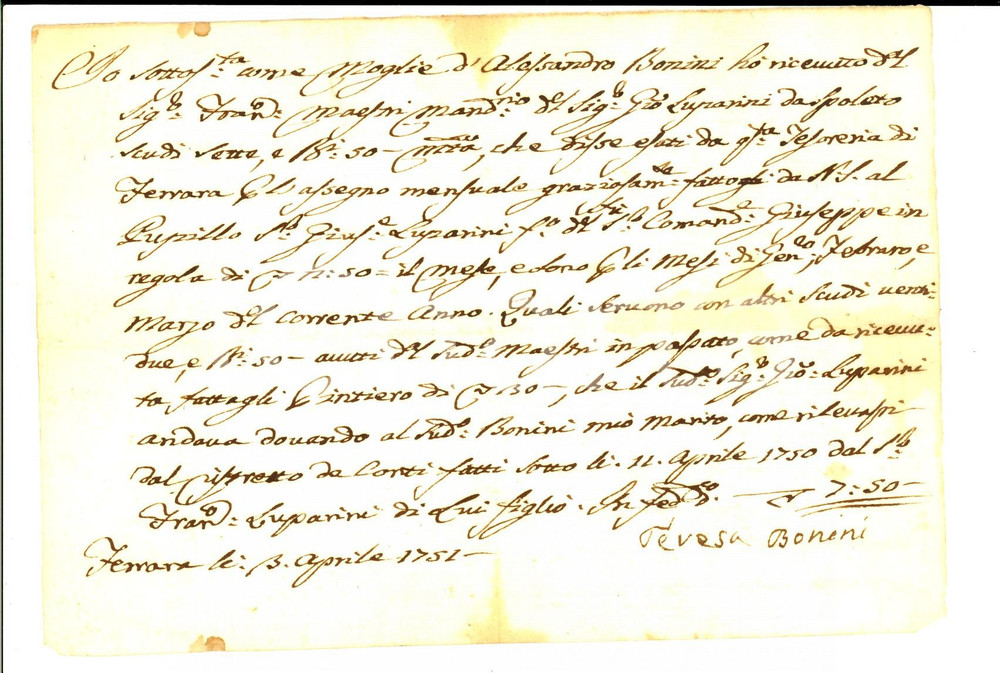 Io sottos:ta come Moglie d'Alessandro Bonini hò ricevuto dal
Sig:r Fran:co Maestri Mand:rio del Sig:r Gio: Luparini da Spoleto
scudi sette, e B:i 50 — mta, che disse esati da q:ta Tesoreria di
Ferrara l'assegno mensuale graziosam:te fattogli da N. S. al
Pupillo Gius:e Luparini f:o del fù S:r Comand:e Giuseppe in
regola di 2:50 = il Mese, e sono li Mesi di Gen:ro, Febraro, e
Marzo del corrente Anno. Quali servono con altri scudi venti-
due, e B:i 50 — avuti dal Sud:o Maestri in passato, come da ricevu-
ta fattagli intiero di 30 —, che il Sud:o Sig:r Gio: Luparini
andava dovando al Sud:o Bonini mio Marito, come rilevasi
dal ristretto de Conti fatti sotto li. 11. Aprile 1750 dal S:r
Fran:co Luparini di Lui figlio. In fed: 7:50 —
Teresa Bonini
Ferrara li. 3. Aprile 1751 —